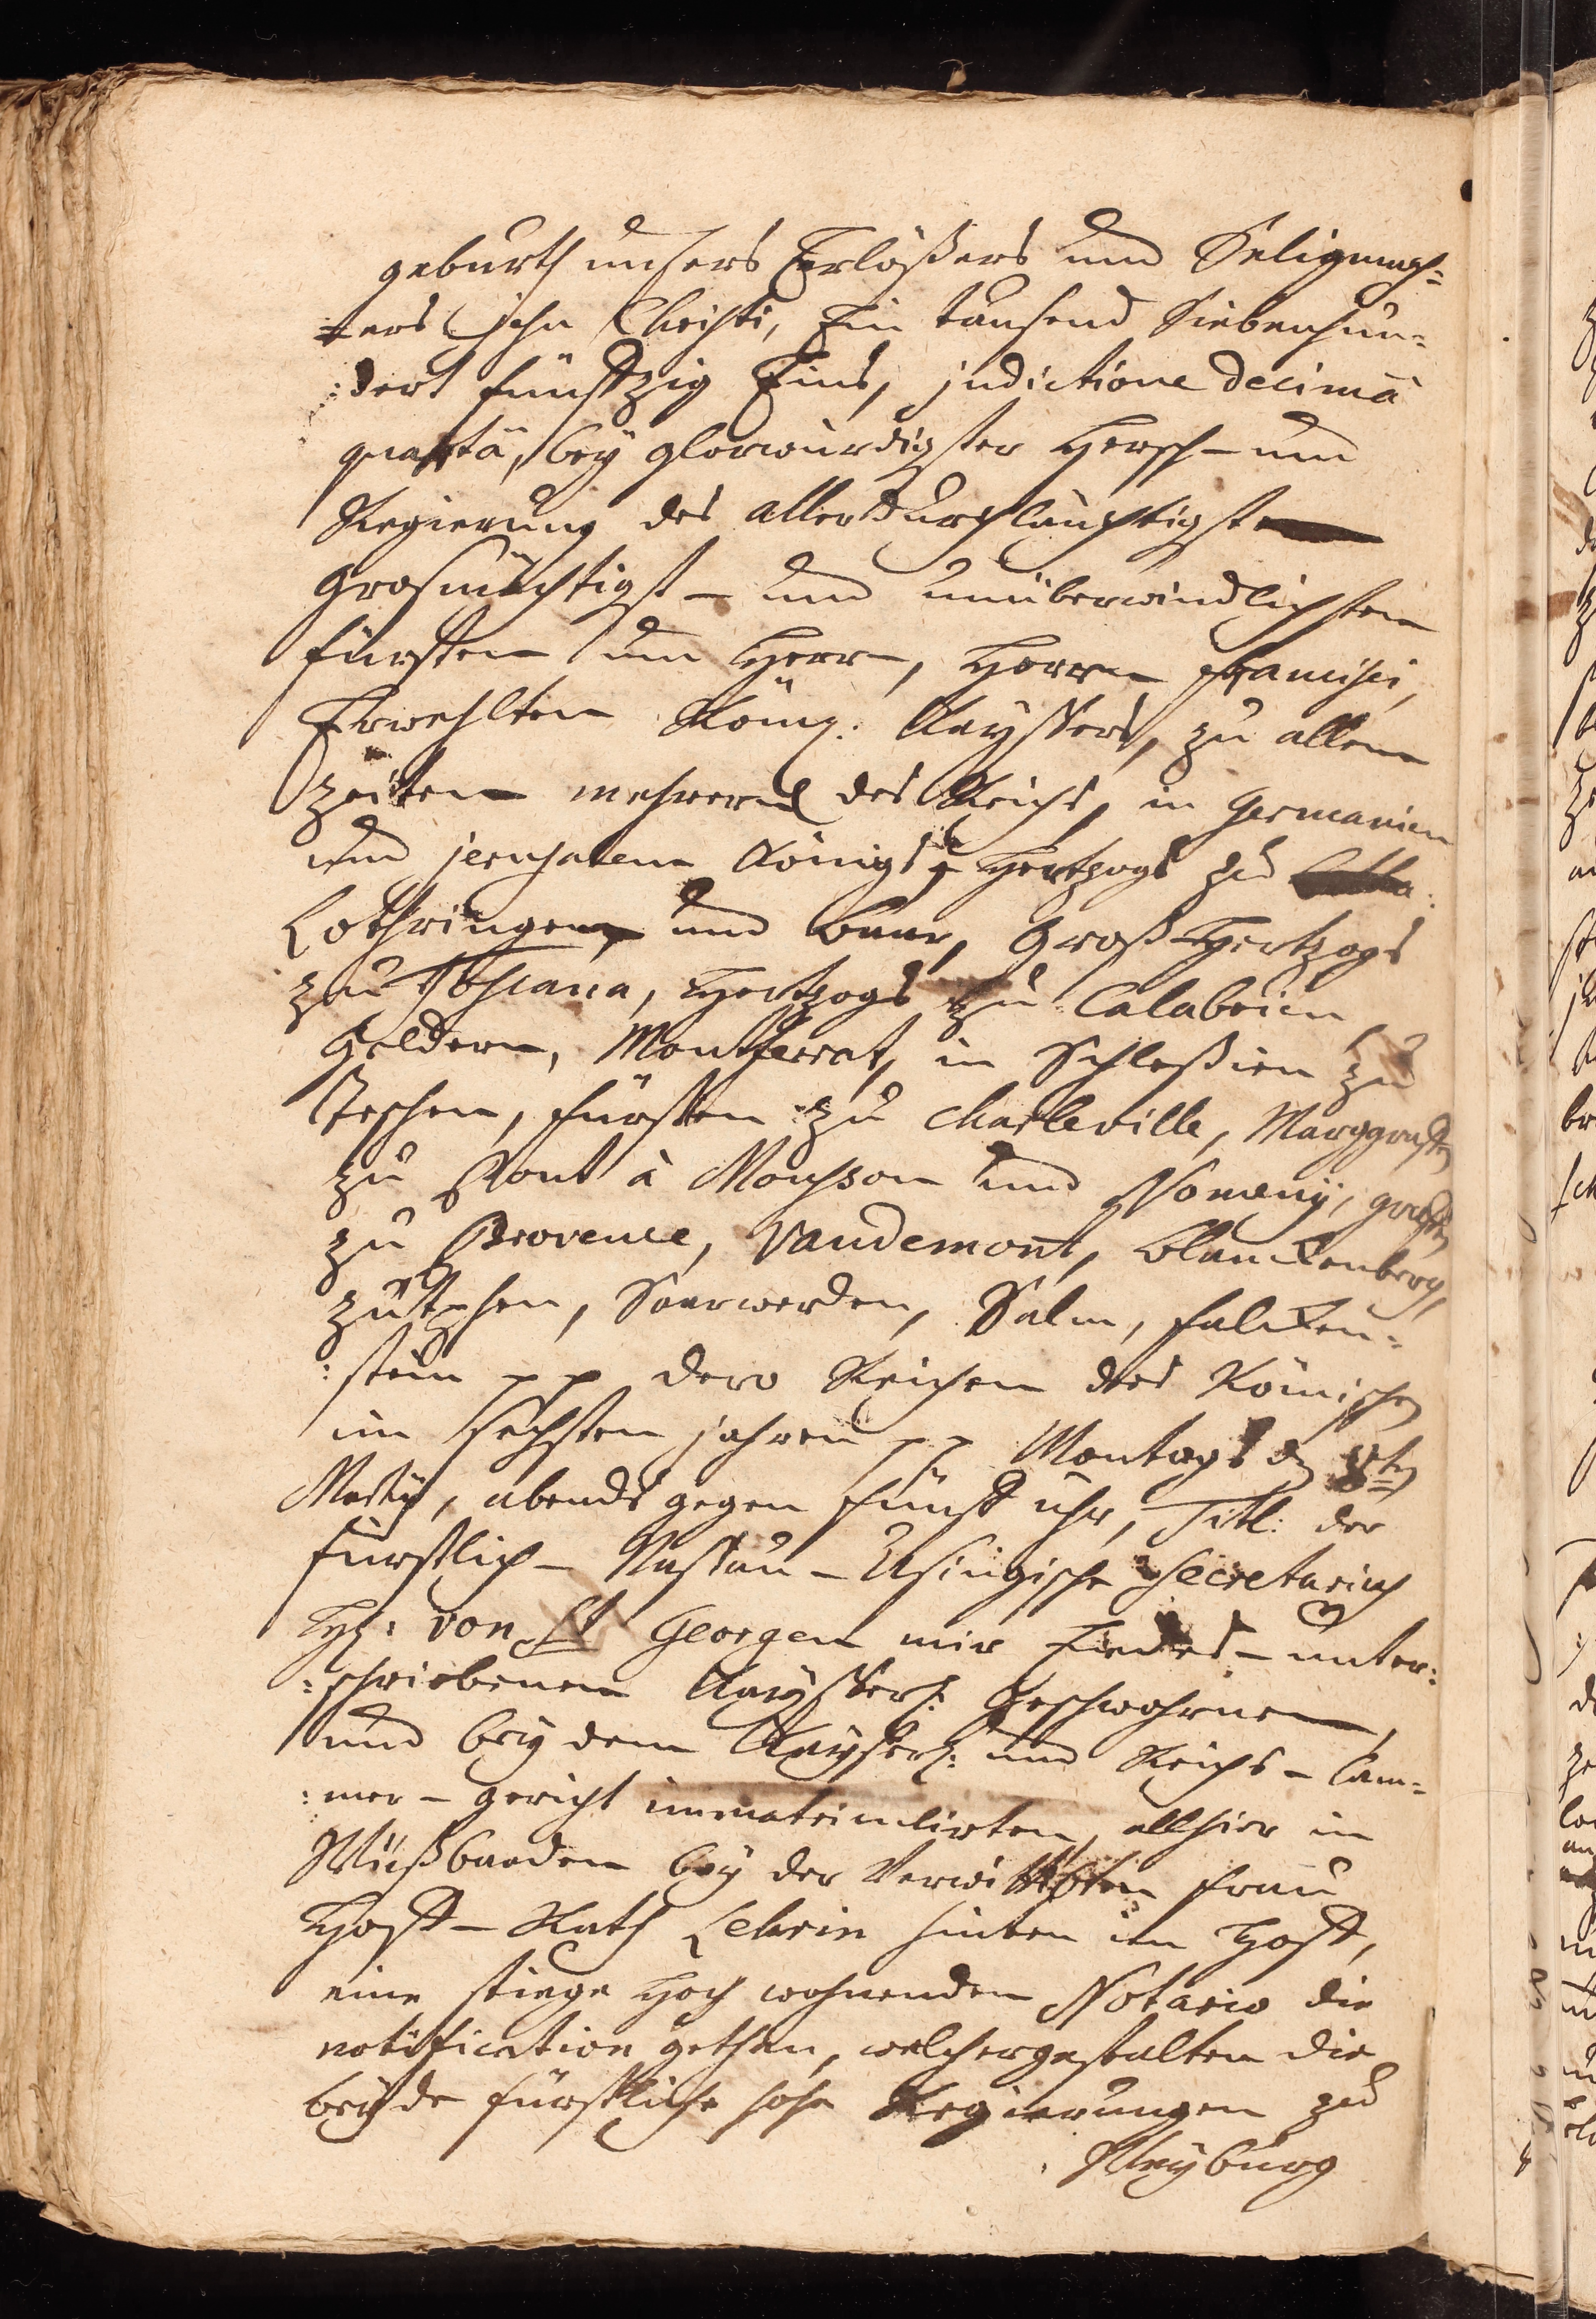 geburth unsers Erlößers und Seligmach=
=ers Jesu Christi, Ein tausend Siebenhun=
:dert fünfftzig Eins, indictione decimâ
quartâ, bey glorwürdigster Hersch- und
Regierung des allerdurchläuchtigst
Grosmächtigst- und unüberwindlichsten
Fürsten und Herrn, Herrn Francisci,
Erwehlten Röm: Kayssers, zu allen
Zeiten mehrern des Reichs, in Germanien
und Jerusalem Königs, Hertzogs zu
Lothringen und Baar, Groß-Hertzogs
zu Toscana, Hertzogs zu Calabrien
Geldern, Montferrat, in Schleßien zu
Teschen, Fürsten zu Charleville, Marggraffen
zu Pont à Mousson und Nomeny, graffen
zu Provence, Vaudemont, Blanckenberg,
Zütphen, Saarwerden, Salm, Falcken=
:stein pp dero Reichen des Römischen
im Sechsten jahren pp Montags d 8ten
Marty, abends gegen fünff uhr, Titl: der
Fürstlich- Nassau- Usingische Secretarius
H: von St Georgen mir Endes- unter:
:schriebenem Kayßerl: Geschwohrnen,
und bey dem Kayserl: und Reichs- Cam=
:mer- gericht immatriculirten, allhier in
Wießbaaden bey der Verwittibten Frau
Hoff- Rath Lehrin hinten im Hoff,
eine stiege hoch wohnenden Notario die
notification gethan, welchergestalten die
beyde Fürstliche hohe Regierungen zu
Weyburg